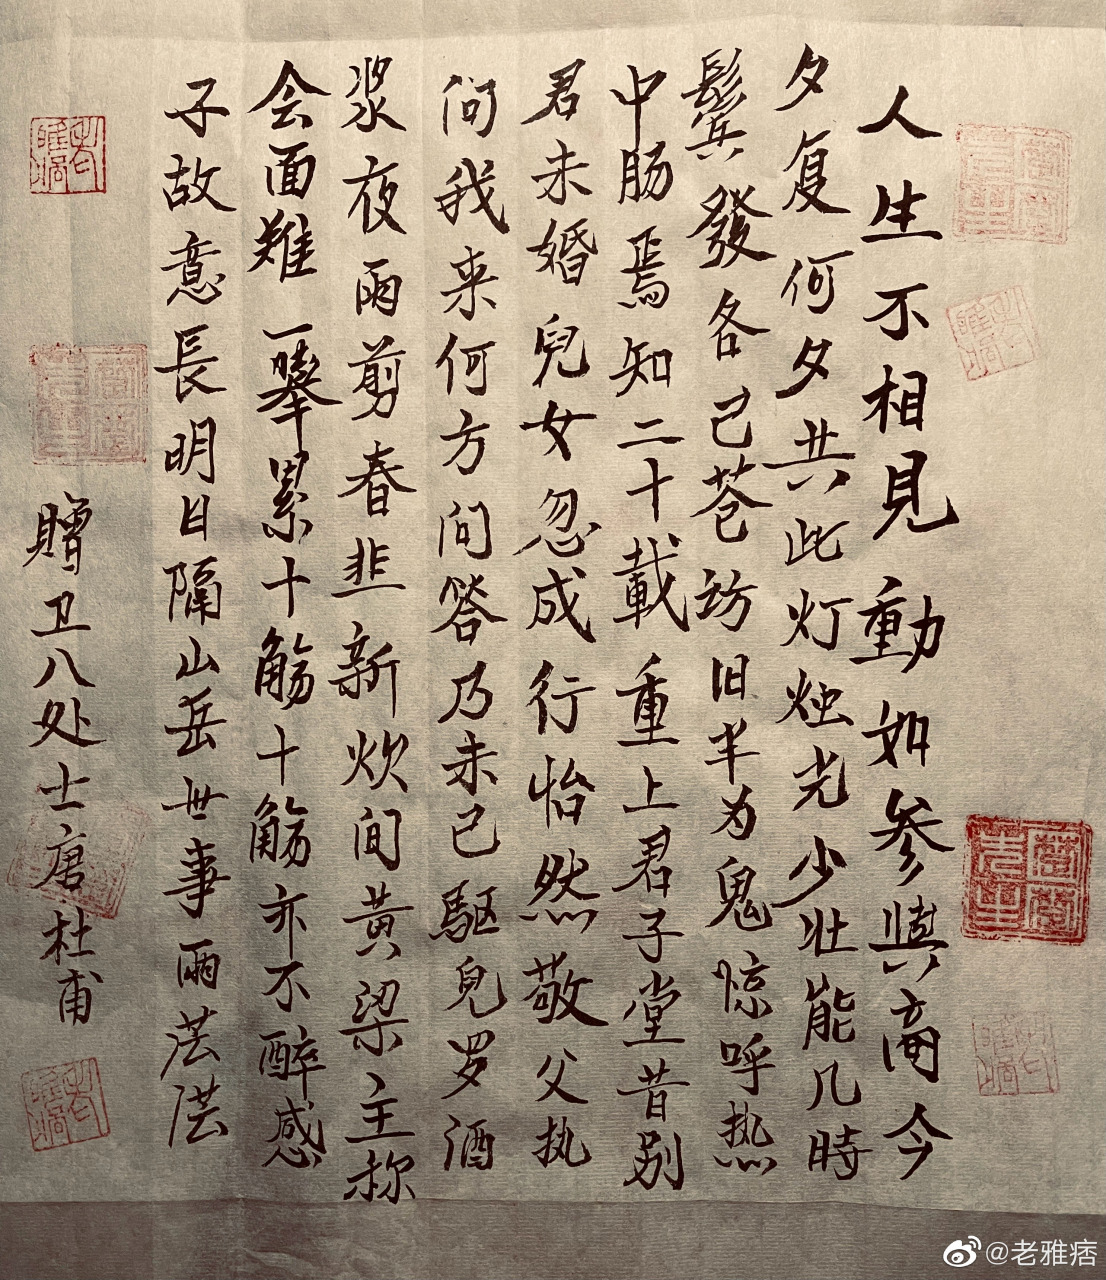 人生不相見動如参與商今
夕复何夕共此灯烛光少壮能几時
鬓發各已苍访旧半为鬼惊呼热
中肠焉知二十載重上君子堂昔别
君未婚兒女忽成行怡然敬父执
问我来何方问答乃未已驱兒罗酒
浆夜雨剪春韭新炊间黄梁主称
会面難一舉累十觞十觞亦不醉感
子故意長明日隔山岳世事兩茫茫
贈卫八处士唐杜甫
@老雅痞